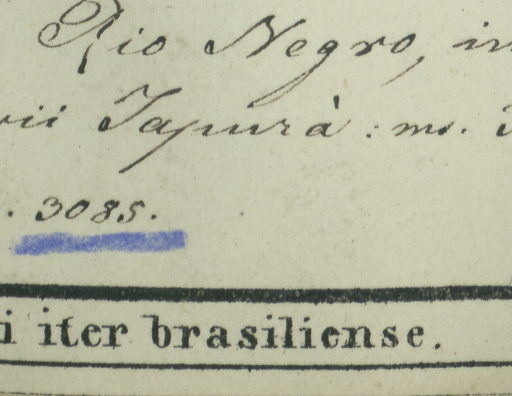 Rio Negro, in
rii Japurà: ms.
. 3085.
i iter brasiliense.